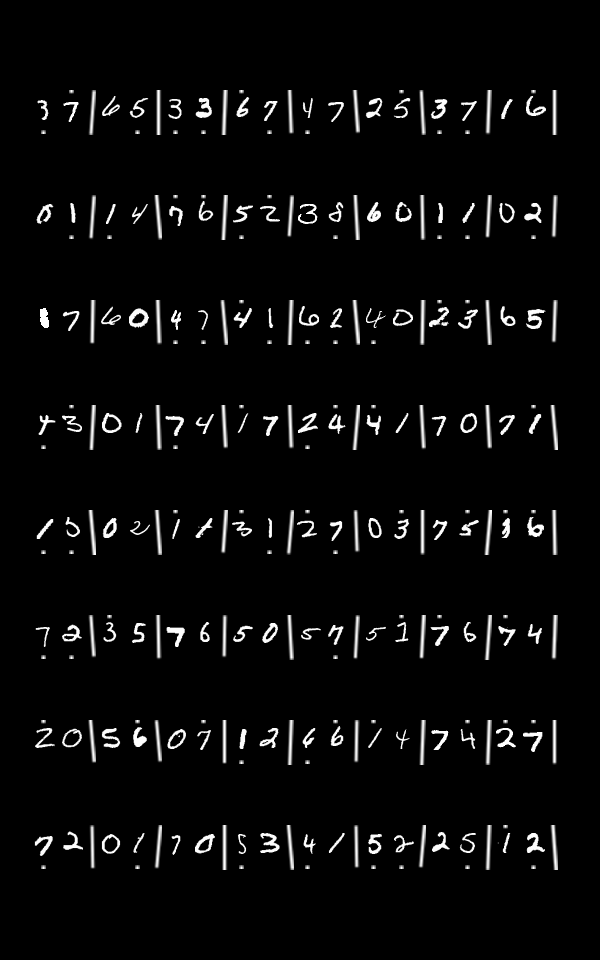 3 7 | 6 5 | 3 3 | 6 7 | 4 7 | 2 5 | 3 7 | 1 6 |
0 1 | 1 4 | 7 6 | 5 2 | 3 8 | 6 0 | 1 1 | 0 2 |
1 7 | 6 0 | 4 7 | 4 1 | 6 2 | 4 0 | 2 3 | 6 5 |
4 3 | 0 1 | 7 4 | 1 7 | 2 4 | 4 1 | 7 0 | 7 1 |
1 5 | 0 2 | 1 1 | 3 1 | 2 7 | 0 3 | 7 5 | 1 6 |
7 2 | 3 5 | 7 6 | 5 0 | 5 7 | 5 1 | 7 6 | 7 4 |
2 0 | 5 6 | 0 7 | 1 2 | 6 6 | 1 4 | 7 4 | 2 7 |
7 2 | 0 1 | 7 0 | 5 3 | 4 1 | 5 2 | 2 5 | 1 2 |